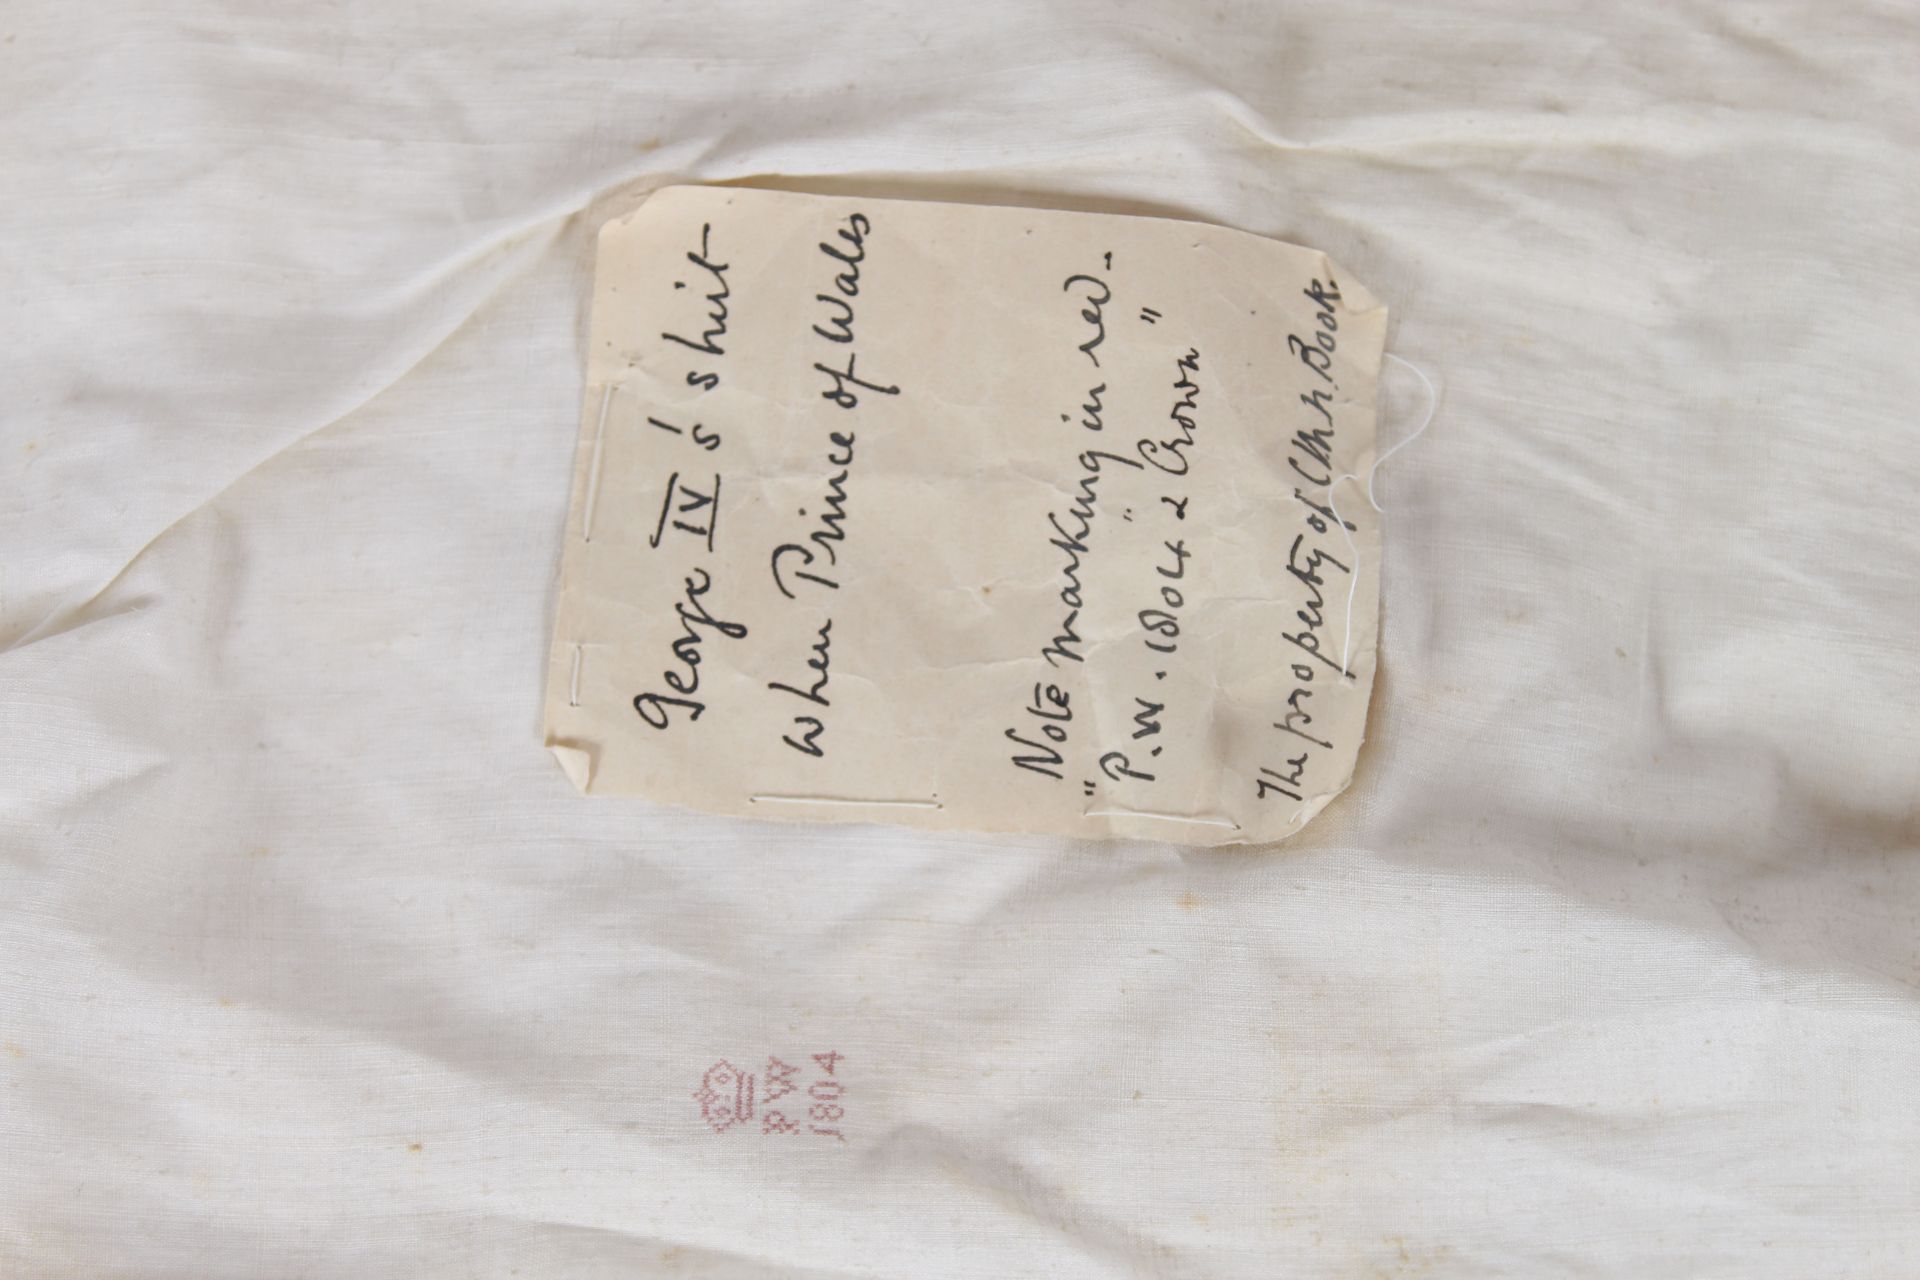 George IV's shirt
when Prince of Wales
Note marking in red -
"P.W. 1804" & Crown "
The property of Book.
PW
1804